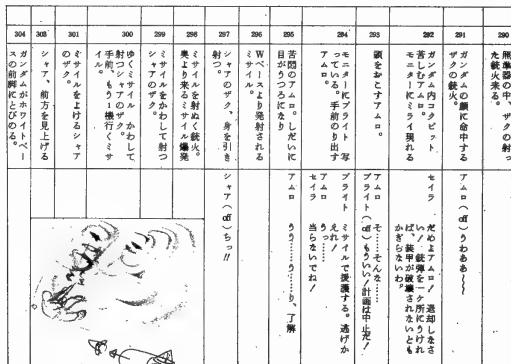 290
照準器の中、ザクの射っ
た銃火来る。
291
ガンダムの顔に命中する
ザクの銃火。
アムロ (off) うわああ〜〜
292
ガンダム内コクピット
苦しむアムロ。
モニターにミライ現れる
セイラ だめよアムロ！ 退却しなさ
い！ 銃弾を一ケ所にうけれ
ば、装甲が破壊されないとも
かぎらないわ。
293
頭をおこすアムロ。
アムロ そ……そんな……
ブライト (off) もういい！計画は中止だ！
294
モニターにブライト 写
っている。手前のり出す
アムロ。
ブライト ミサイルで援護する。逃げか
えれ！
アムロ うっ……
セイラ 当らないでね！
295
苦悶のアムロ。しだいに
目がうつろになり
アムロ うう……う……り、了解
296
Wベースより発射される
ミサイル。
297
シャアのザク、身を引き
射つ。
シャア (off) ちっ!!
298
ミサイルを射ぬく銃火。
奥より来るミサイル爆発
299
ミサイルをかわして射つ
シャアのザク。
300
ゆくミサイル かわして
射つシャアのザク。
手前、もう1機行くミサ
イル。
301
ミサイルをよけるシャア
のザク。
303
シャア、前方を見上げる
304
ガンダムがホワイトベー
スの前脚にとびのる。